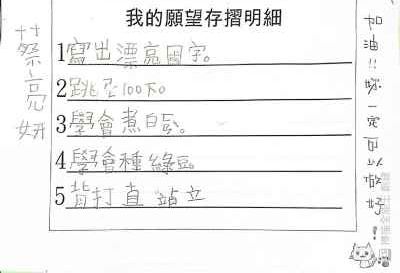 我的願望存摺明細
1寫出漂亮國字。
2跳

100下。
3學會煮白
4學會種綠豆。
5背打直 站立
加油!!妳一定可以做好!
亮妍